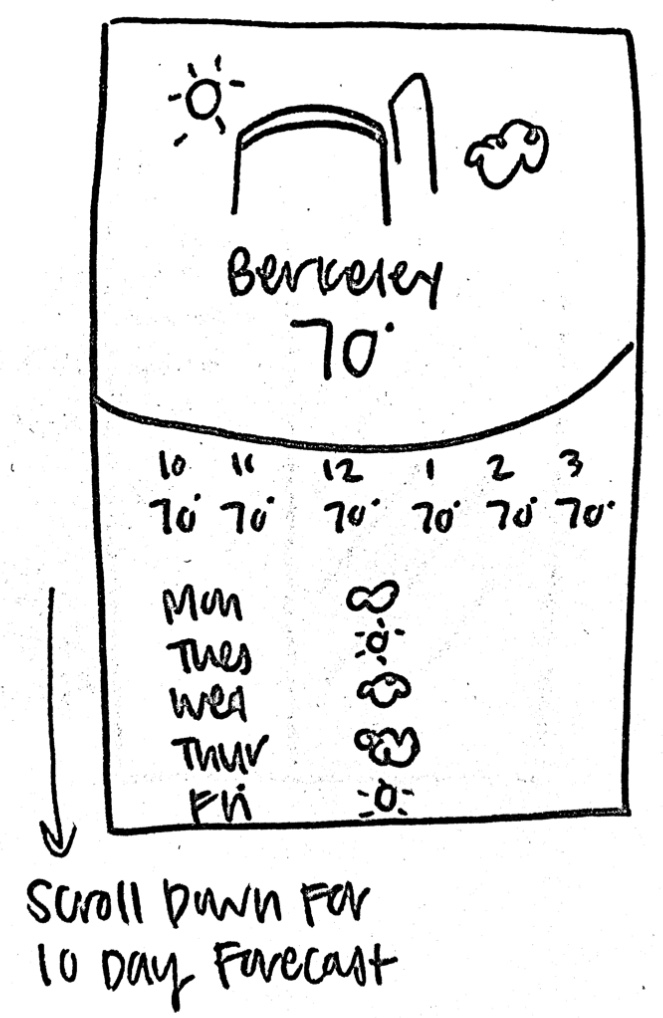 Berkeley
70°
10 11 12 1 2 3
70° 70° 70° 70° 70° 70°
Mon
Tues
Wed
Thur
Fri
Scroll Down For
10 Day Forecast